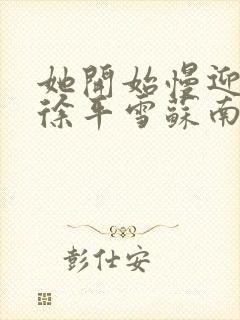 她開始慢迎
徐平雪蘇南
彭仕安